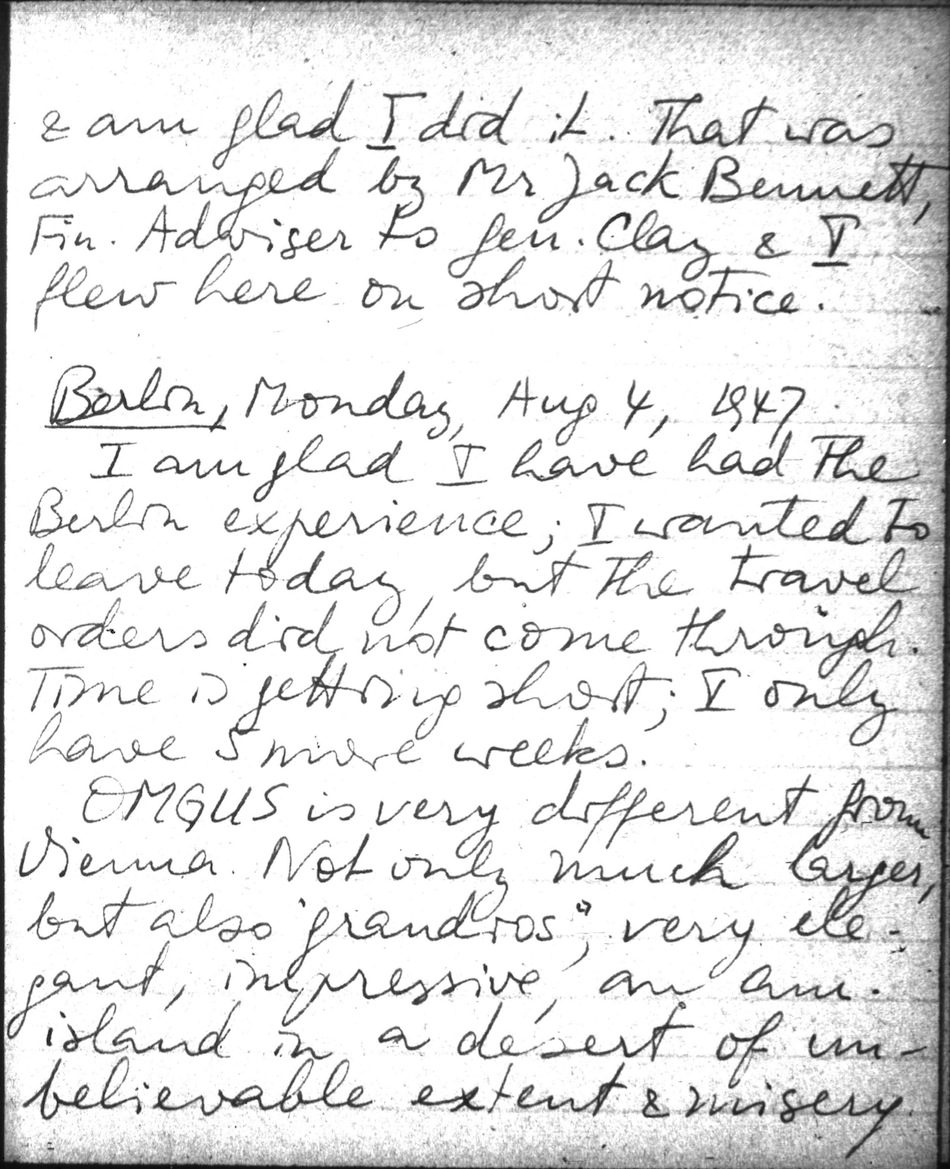 & am glad I did it. That was
arranged by Mr Jack Bennett,
Fin. Adviser to Gen. Clay & I
flew here on short notice.
Berlin, Monday, Aug 4, 1947
I am glad I have had the
Berlin experience; I wanted to
leave today, but the travel
orders did not come through.
Time is getting short; I only
have 5 more weeks.
OMGUS is very different from
Vienna. Not only much larger,
but also "grandios", very ele-
gant, impressive, an am.
island in a desert of un-
believable extent & misery